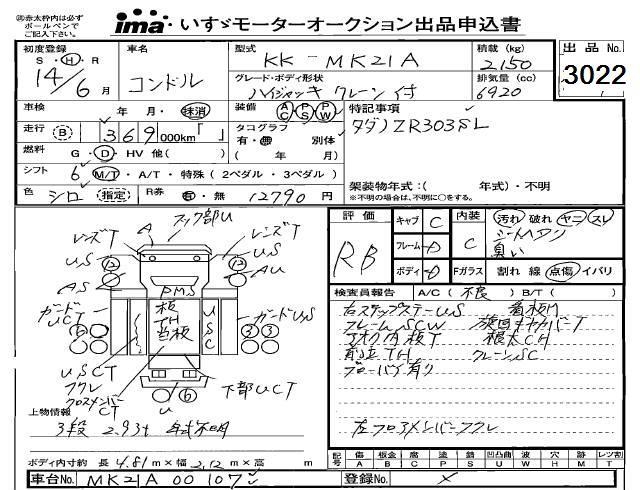 ㊟赤太枠内は必ず
ボールペンで
ご記入下さい。
ima・いすゞモーターオークション出品申込書
初度登録 車名 型式 KK-MK21A 積載(kg) 2150 出品No.
S・H・R 14/6月 コンドル グレード・ボディ形状 ハイジャッキ クレーン付 排気量(cc) 6920 3022
車検 年 月・抹消 装備 AC PS PW 特記事項
走行 B 369,000km「 」 タコグラフ 有・無 別体 タダノZR303SL
燃料 G・D・HV 他( ) ( 年 月)
シフト 6 M/T・A/T・特殊(2ペダル・3ペダル) 架装物年式:( 年式)・不明
色 シロ (指定) R券 有・無 12790円 ※不明の場合は、不明に○をする。
フック部U
レンズT A レンズT
US US
AS AU
PMS
ガードUCT 板 TH 首板 USC ガードUS
USCT
フクレ
クロスメンバーCT U 下部UCT
上物情報
3段 2.93t 年式不明
評価 キャブ C 内装 汚れ 破れ ヤニ スレ
RB フレーム D C シートヘタリ
臭い
ボディ D Fガラス 割れ 線 点傷 イパリ
検査員報告 A/C(不良) B/T( )
右ステップステーUS 首板凹
フレームSCW 旋回ギヤカバーT
アオリ内板T 根太CH
首立TH クレーンSC
ブローバイ有り
左フロアメンバーフクレ
ボディ内寸約 長 4.81m×幅 2.12m×高 m
記号 傷 板金 腐 塗 錆 凹凸曲 波 穴 跡 レツ割
A B C P S U W H M T
車台No. MK21A 00107 登録No. ×